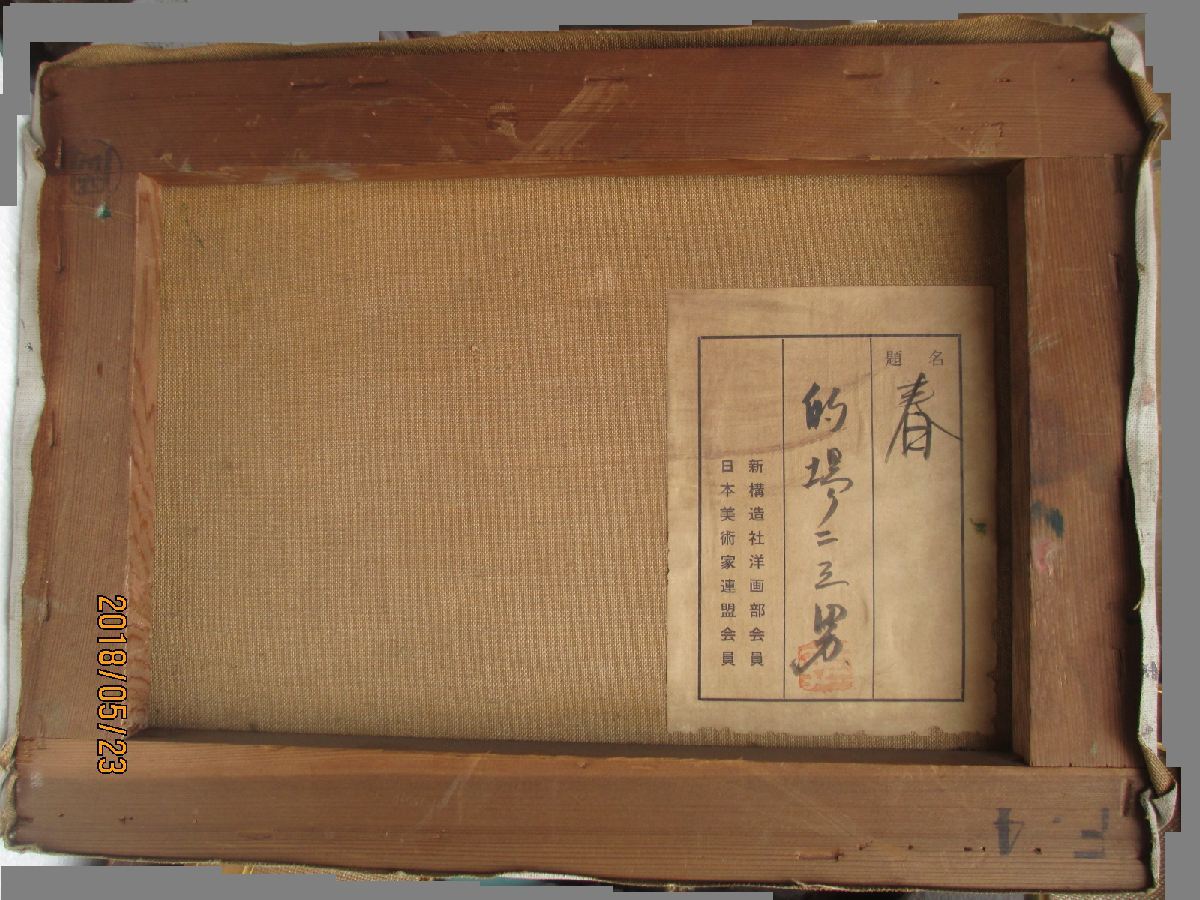 題名
春
的場二三男
新構造社洋画部会員
日本美術家連盟会員
F.4
2018/05/23